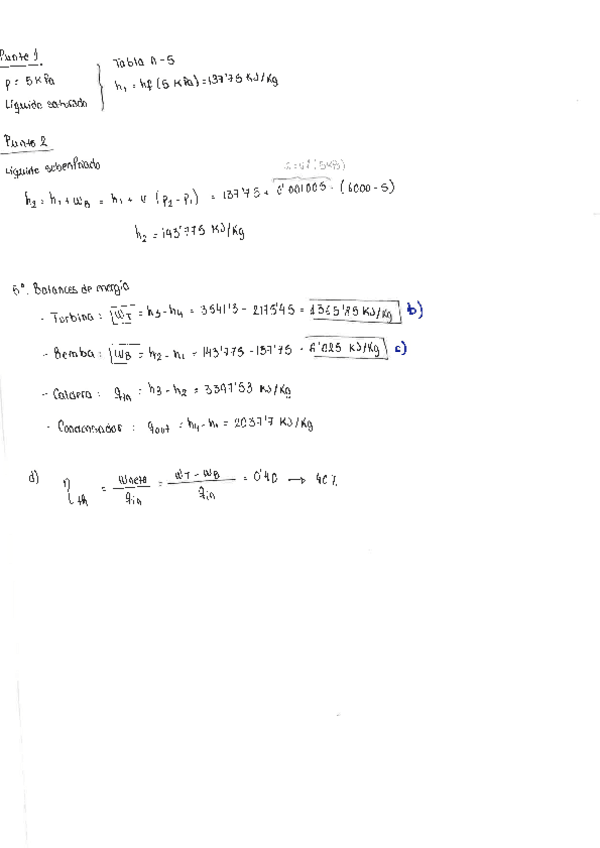 Punto 1
p = 5 KPa
Líquido saturado
Tabla A-5
h₁ = hf (5 KPa) = 137'75 KJ/Kg
Punto 2
Líquido subenfriado
h₂ = h₁ + wB = h₁ + v (P₂ - P₁) = 137'75 + 0'001005 · (6000 - 5)
h₂ = 143'775 KJ/Kg
5º. Balances de energía
- Turbina: wT = h₃ - h₄ = 3541'3 - 2175'45 = 1365'85 KJ/Kg b)
- Bomba: wB = h₂ - h₁ = 143'775 - 137'75 = 6'025 KJ/Kg c)
- Caldera: qin = h₃ - h₂ = 3397'53 KJ/Kg
- Condensador: qout = h₄ - h₁ = 2037'7 KJ/Kg
d) ηth = wneto / qin = wT - wB / qin = 0'40 → 40%